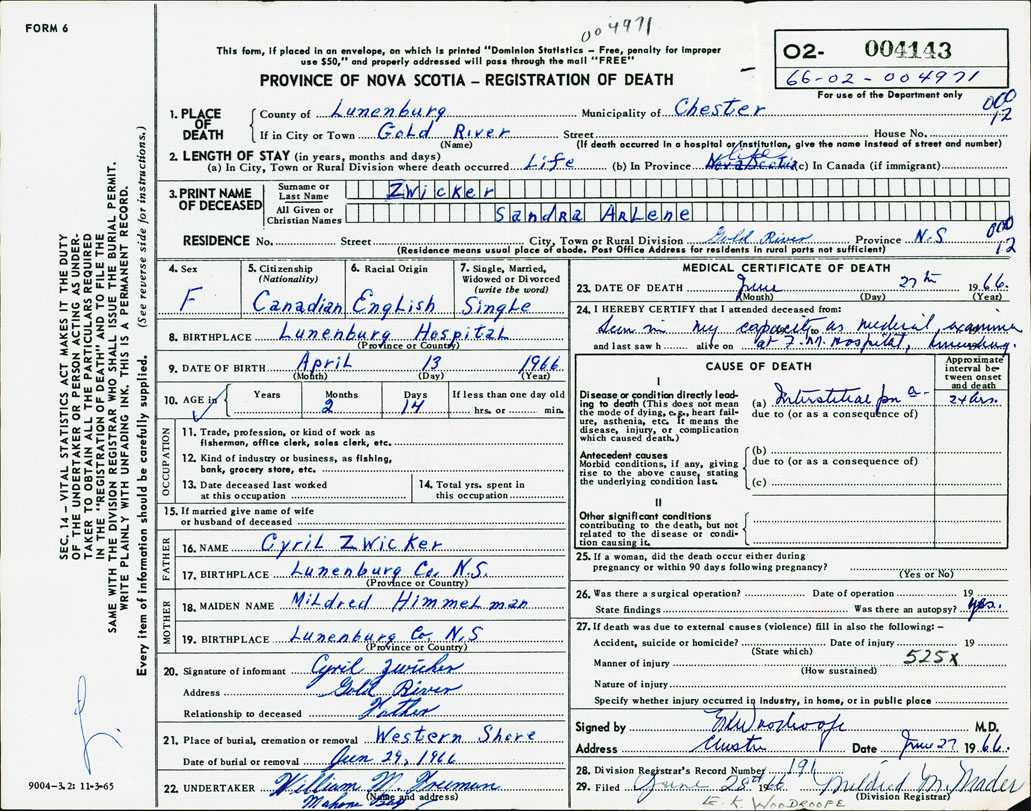 FORM 6
004971
This form, if placed in an envelope, on which is printed "Dominion Statistics — Free, penalty for improper
use $50," and properly addressed will pass through the mail "FREE"
PROVINCE OF NOVA SCOTIA — REGISTRATION OF DEATH
O2- 004143
66-02-004971
For use of the Department only
000
12
1. PLACE OF DEATH
County of Lunenburg Municipality of Chester
If in City or Town Gold River Street House No.
(Name) (If death occurred in a hospital or institution, give the name instead of street and number)
2. LENGTH OF STAY (in years, months and days)
(a) In City, Town or Rural Division where death occurred Life (b) In Province Nova Scotia Life (c) In Canada (if immigrant)
3. PRINT NAME OF DECEASED
Surname or Last Name Zwicker
All Given or Christian Names Sandra Arlene
RESIDENCE No. Street City, Town or Rural Division Gold River Province N.S
(Residence means usual place of abode. Post Office Address for residents in rural parts not sufficient)
000
12
4. Sex
F
5. Citizenship
(Nationality)
Canadian
6. Racial Origin
English
7. Single, Married,
Widowed or Divorced
(write the word)
Single
8. BIRTHPLACE Lunenburg Hospital
(Province or Country)
9. DATE OF BIRTH April 13 1966
(Month) (Day) (Year)
10. AGE in
Years Months Days If less than one day old
2 14 hrs. or min.
OCCUPATION
11. Trade, profession, or kind of work as
fisherman, office clerk, sales clerk, etc.
12. Kind of industry or business, as fishing,
bank, grocery store, etc.
13. Date deceased last worked
at this occupation
14. Total yrs. spent in
this occupation
15. If married give name of wife
or husband of deceased
FATHER
16. NAME Cyril Zwicker
17. BIRTHPLACE Lunenburg Co. N.S.
(Province or Country)
MOTHER
18. MAIDEN NAME Mildred Himmelman
19. BIRTHPLACE Lunenburg Co. N.S
(Province or Country)
20. Signature of informant Cyril Zwicker
Address Gold River
Relationship to deceased Father
21. Place of burial, cremation or removal Western Shore
Date of burial or removal Jun 29, 1966
22. UNDERTAKER William M. Freeman
(Name and address)
Mahone Bay
MEDICAL CERTIFICATE OF DEATH
23. DATE OF DEATH June 27th 1966.
(Month) (Day) (Year)
24. I HEREBY CERTIFY that I attended deceased from:
Seen in my capacity to as medical examiner
and last saw h alive on at F.M. Hospital, Lunenburg.
CAUSE OF DEATH
Approximate
interval between onset
and death
I
Disease or condition directly leading to death (This does not mean
the mode of dying, e.g., heart failure, asthenia, etc. It means the
disease, injury, or complication
which caused death.)
(a) Interstitial pn 24 hrs.
due to (or as a consequence of)
Antecedent causes
Morbid conditions, if any, giving
rise to the above cause, stating
the underlying condition last.
(b)
due to (or as a consequence of)
(c)
II
Other significant conditions
contributing to the death, but not
related to the disease or condition causing it.
25. If a woman, did the death occur either during
pregnancy or within 90 days following pregnancy?
(Yes or No)
26. Was there a surgical operation? Date of operation 19
State findings Was there an autopsy? Yes.
27. If death was due to external causes (violence) fill in also the following: —
Accident, suicide or homicide? Date of injury 19
(State which)
Manner of injury 525x
(How sustained)
Nature of injury
Specify whether injury occurred in Industry, in home, or in public place
Signed by EKWoodroofe M.D.
Address Chester Date June 27 1966.
28. Division Registrar's Record Number 191
29. Filed June 28th 1966 Mildred M. Mader
(Division Registrar)
E. K. WOODROOFE
SEC. 14 — VITAL STATISTICS ACT MAKES IT THE DUTY
OF THE UNDERTAKER OR PERSON ACTING AS UNDERTAKER TO OBTAIN ALL THE PARTICULARS REQUIRED
IN THE "REGISTRATION OF DEATH" AND TO FILE THE
SAME WITH THE DIVISION REGISTRAR WHO SHALL ISSUE THE BURIAL PERMIT.
WRITE PLAINLY WITH UNFADING INK. THIS IS A PERMANENT RECORD.
Every item of information should be carefully supplied. (See reverse side for instructions.)
9004-3.2: 11-3-65